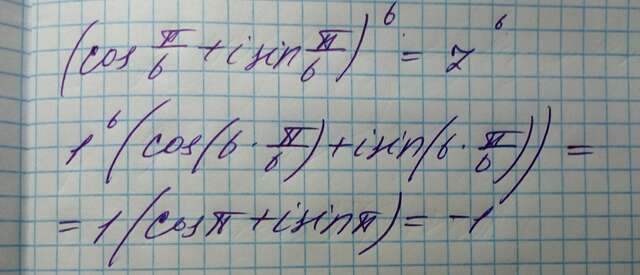 (cos π/6 + i sin π/6)^6 = z^6
1^6 (cos(6 · π/6) + i sin(6 · π/6)) =
= 1 (cos π + i sin π) = -1